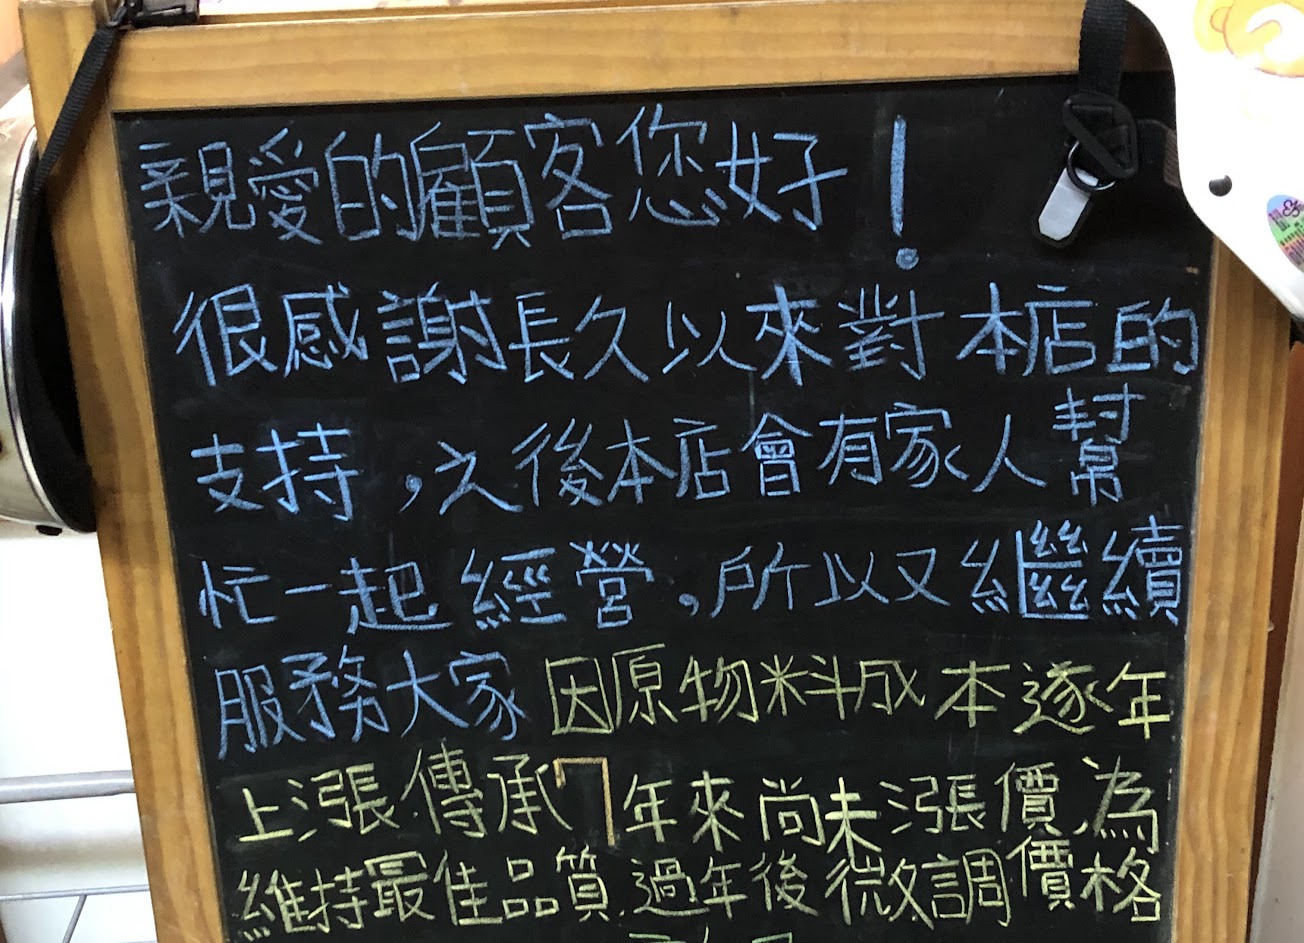 親愛的顧客您好！
很感謝長久以來對本店的
支持，之後本店會有家人幫
忙一起經營，所以又繼續
服務大家因原物料成本逐年
上漲.傳承7年來尚未漲價,為
維持最佳品質.過年後微調價格